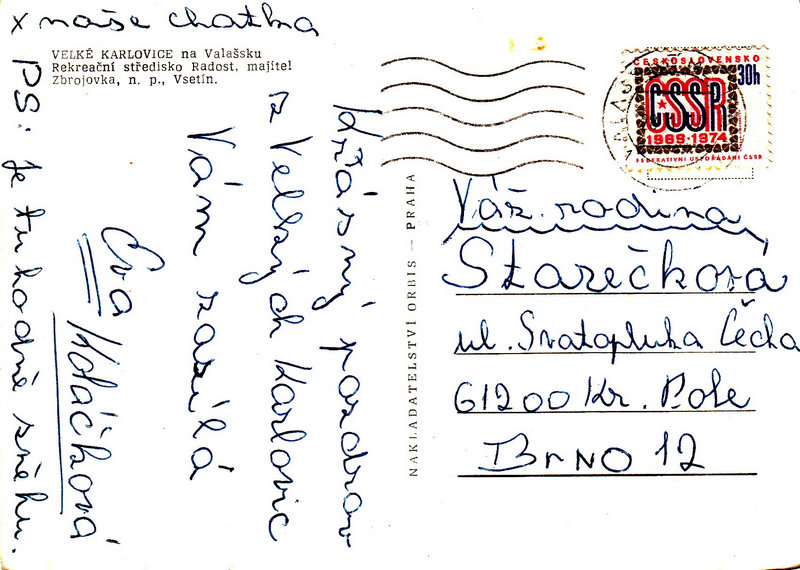 x naše chatka
VELKÉ KARLOVICE na Valašsku
Rekreační středisko Radost, majitel
Zbrojovka, n. p., Vsetín.
Krásný pozdrav
z Velkých Karlovic
Vám zasílá
Eva
Koláčková
PS: je tu hodně sněhu.
NAKLADATELSTVÍ ORBIS — PRAHA
ČESKOSLOVENSKO
30h
ČSSR
1969-1974
FEDERATIVNÍ USPOŘÁDÁNÍ ČSSR
Váž. rodina
Starečková
ul. Svatopluka Čecha
61200 Kr. Pole
Brno 12